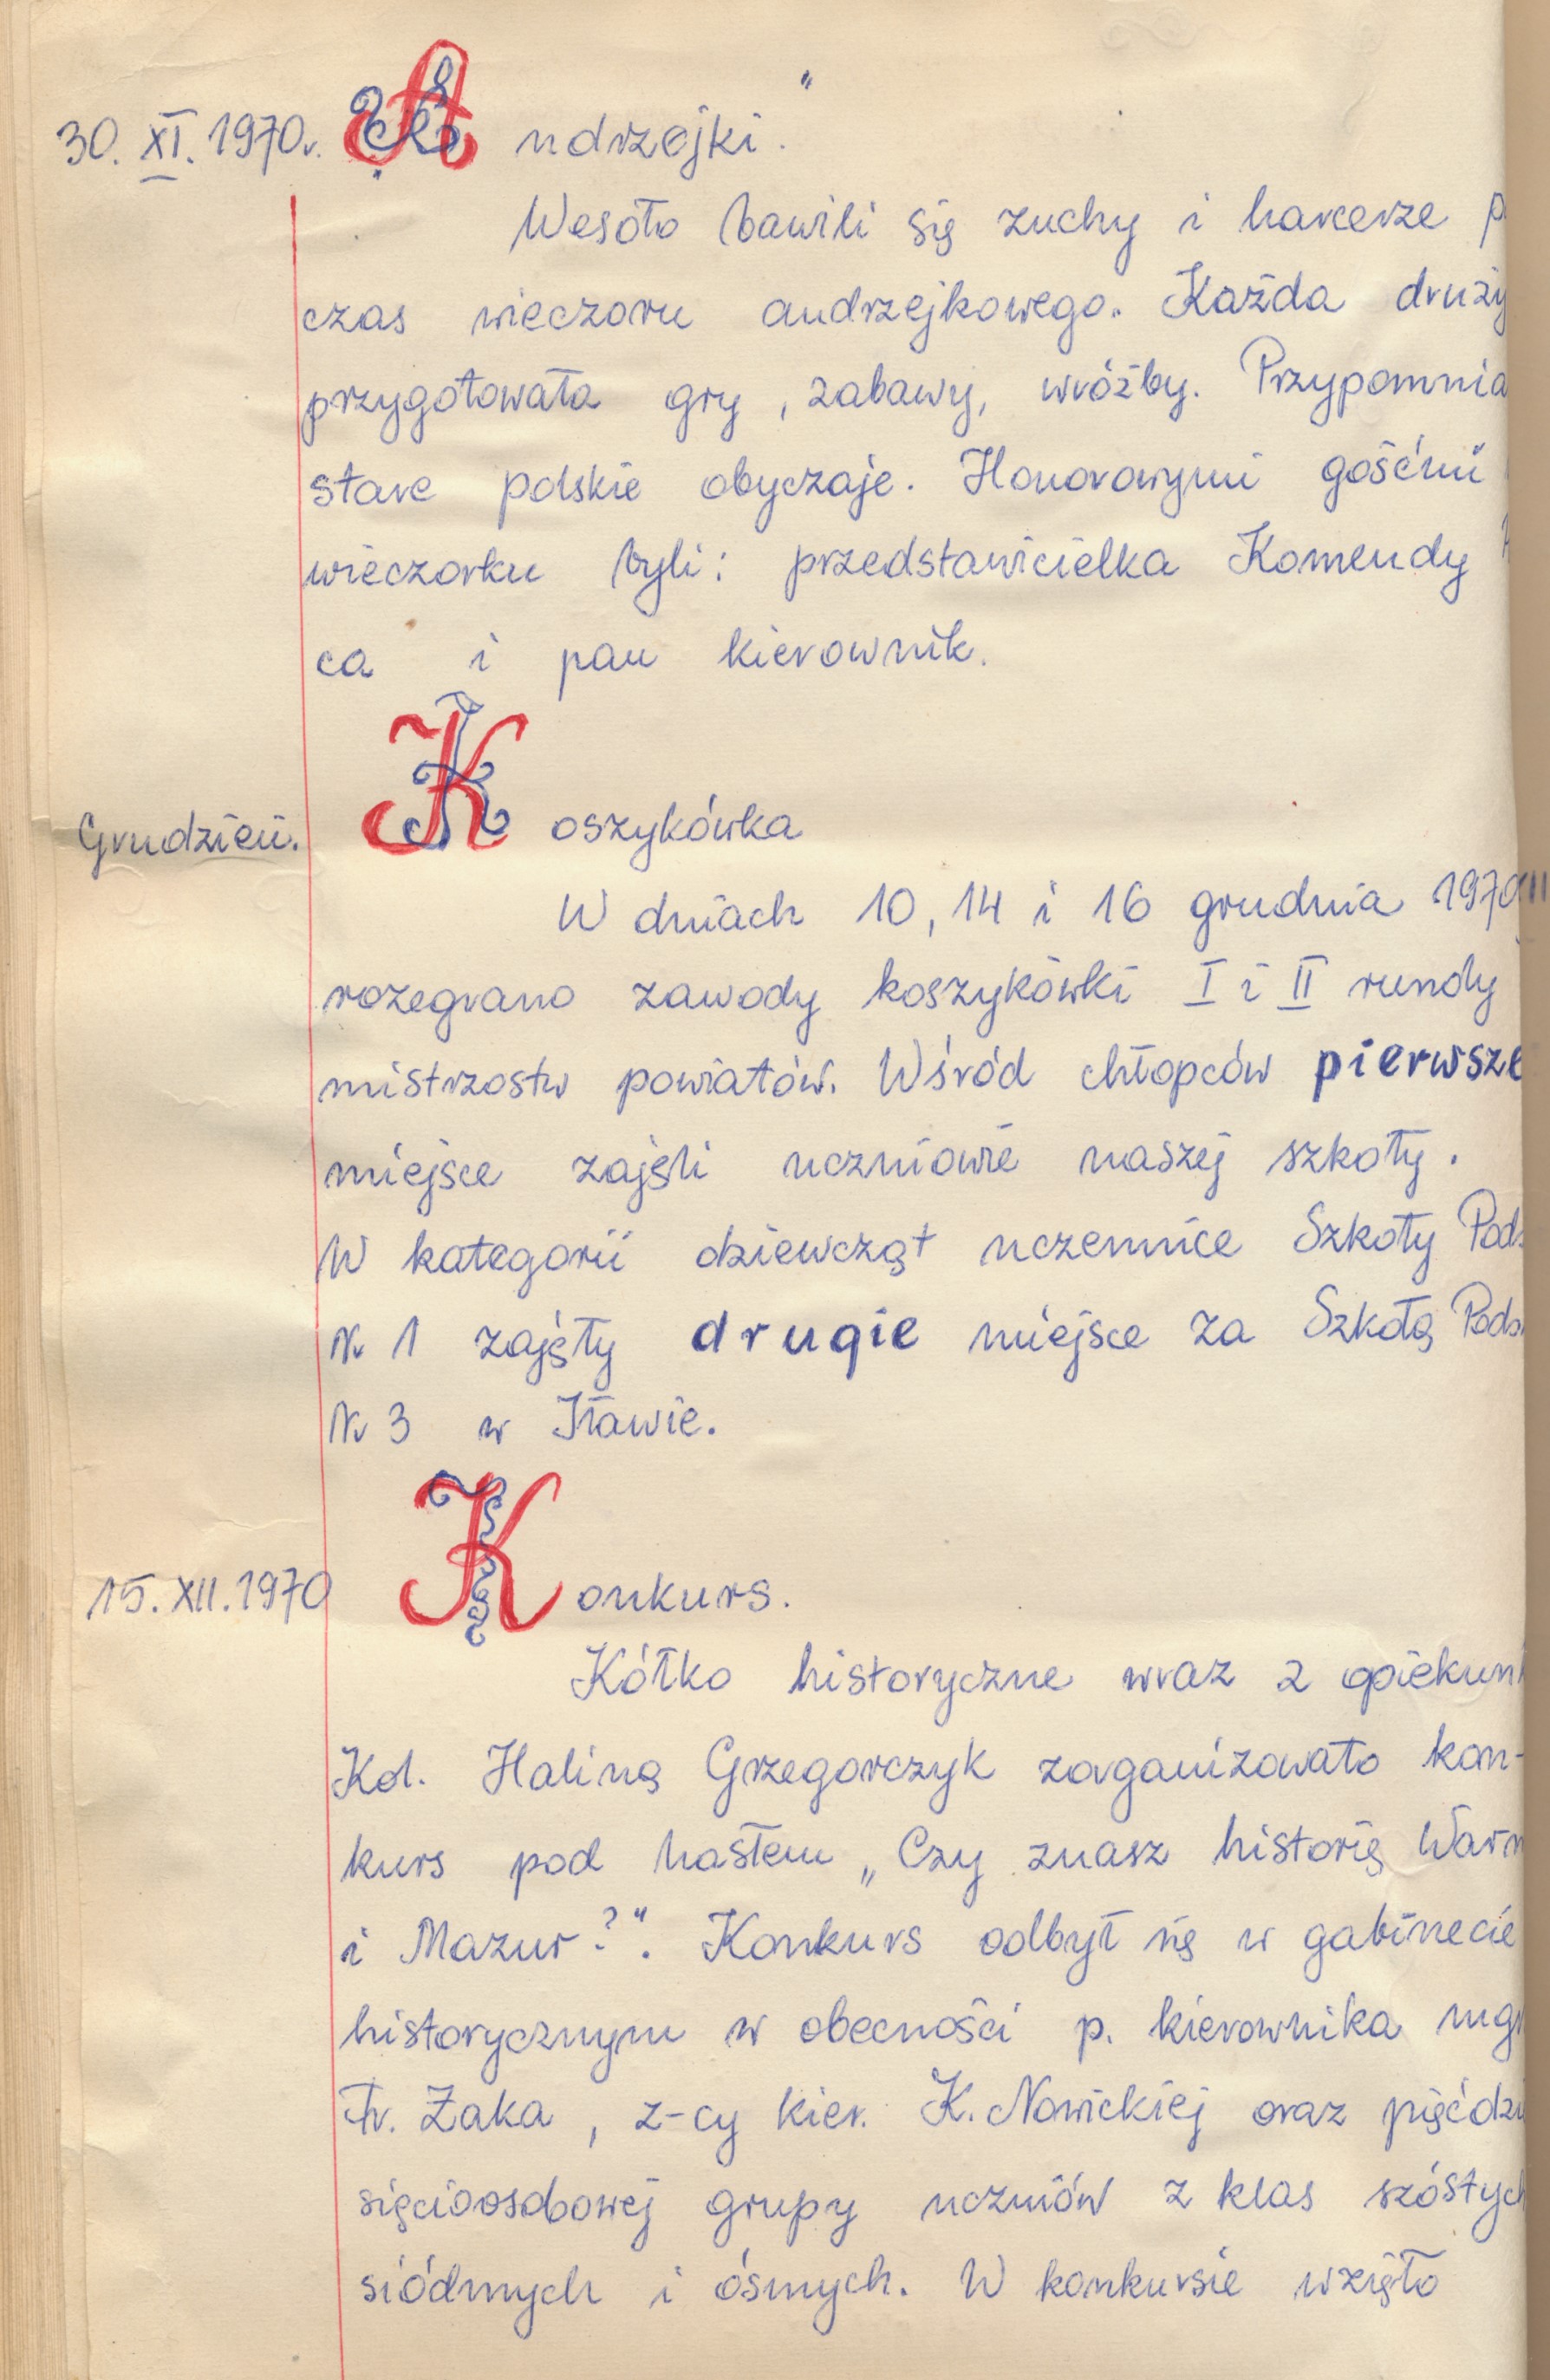 30. XI. 1970r. Andrzejki."
Wesoło bawili się zuchy i harcerze
czas wieczoru andrzejkowego. Każda druży
przygotowała gry, zabawy, wróżby. Przypomnia
stare polskie obyczaje. Honorowymi gośćmi
wieczorku byli: przedstawicielka Komendy
ca i pan kierownik.
Grudzień. Koszykówka
W dniach 10, 14 i 16 grudnia 1970
rozegrano zawody koszykówki I i II rundy
mistrzostw powiatów. Wśród chłopców pierwsze
miejsce zajęli uczniowie naszej szkoły.
W kategorii dziewcząt uczennice Szkoły Pods
Nr 1 zajęły drugie miejsce za Szkołą Pods
Nr 3 w Iławie.
15. XII. 1970 Konkurs.
Kółko historyczne wraz z opiekun
Kol. Haliną Grzegorczyk zorganizowało kon-
kurs pod hasłem „Czy znasz historię Warm
i Mazur?". Konkurs odbył się w gabinecie
historycznym w obecności p. kierownika mgr
Fr. Żaka, z-cy kier. K. Nowickiej oraz pięćdzi
sięcioosobowej grupy uczniów z klas szóstych
siódmych i ósmych. W konkursie wzięło